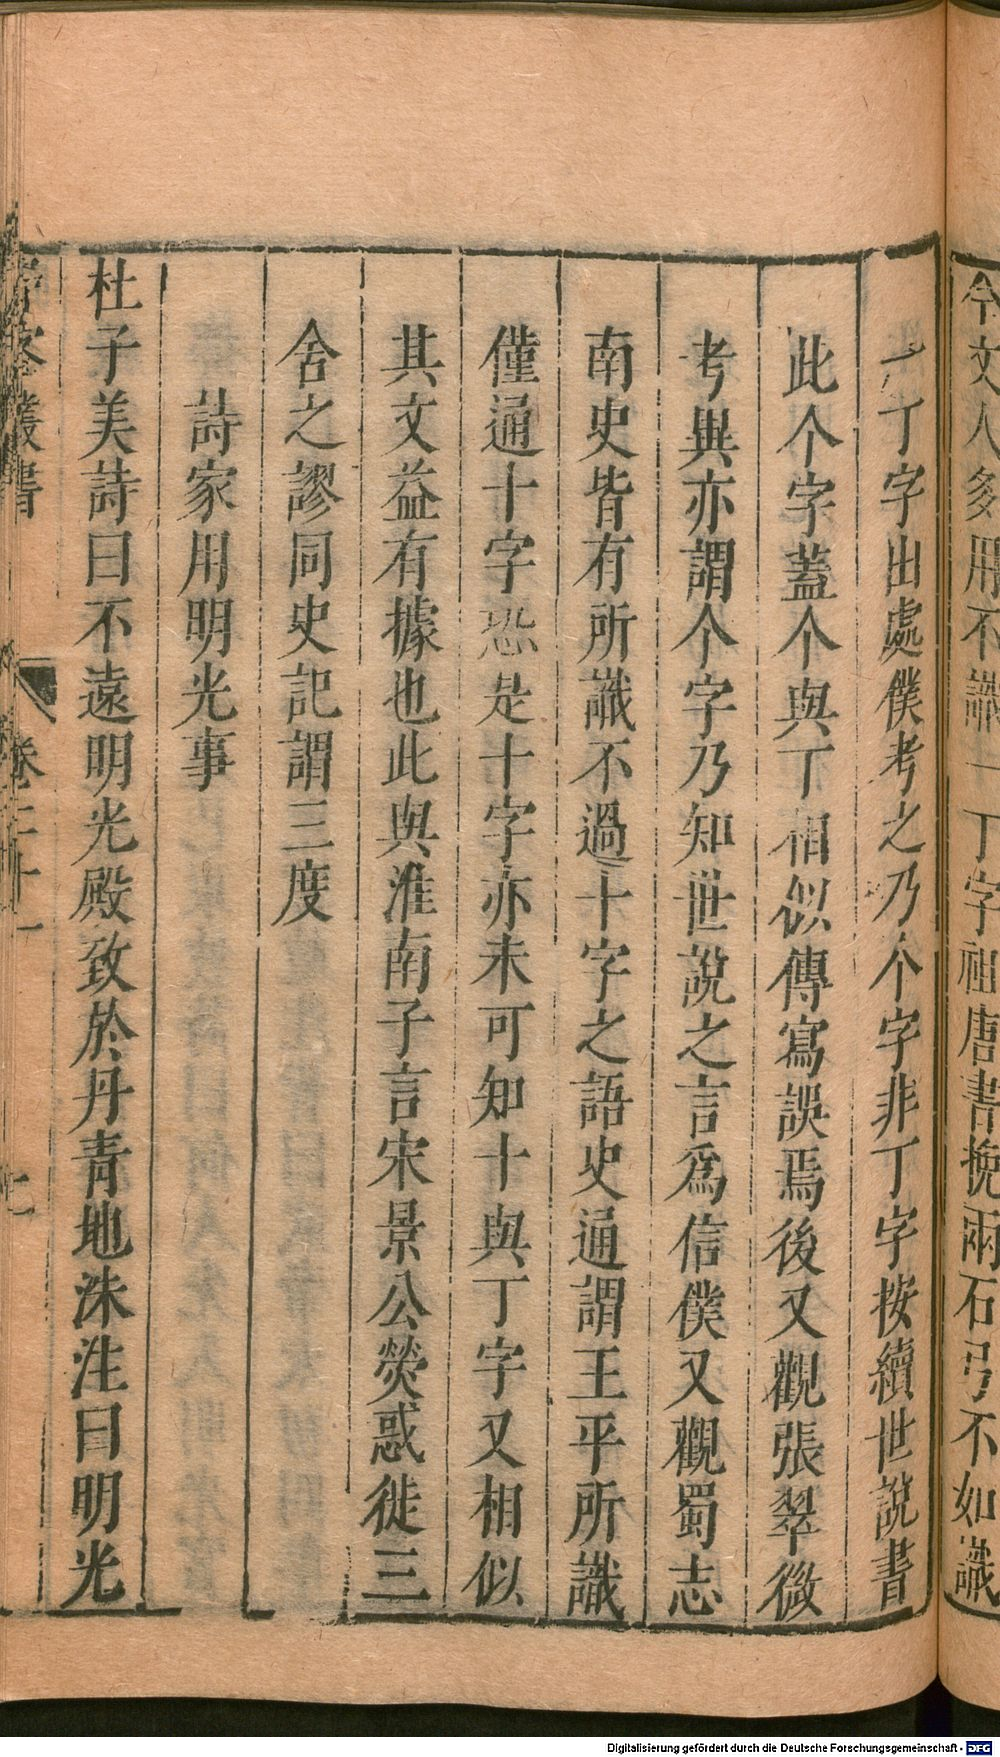 今文人多用不識一丁字祖唐書挽兩石弓不如識
一丁字出處僕考之乃个字非丁字按續世說書
此个字蓋个與丁相似傳寫誤焉後又觀張翠微
考異亦謂个字乃知世說之言爲信僕又觀蜀志
南史皆有所識不過十字之語史通謂王平所識
僅通十字恐是十字亦未可知十與丁字又相似
其文益有據也此與淮南子言宋景公熒惑徙三
舍之謬同史記謂三度
詩家用明光事
杜子美詩曰不遠明光殿致於丹青地洙注曰明光
客叢書 卷二十一 七
Digitalisierung gefördert durch die Deutsche Forschungsgemeinschaft - DFG